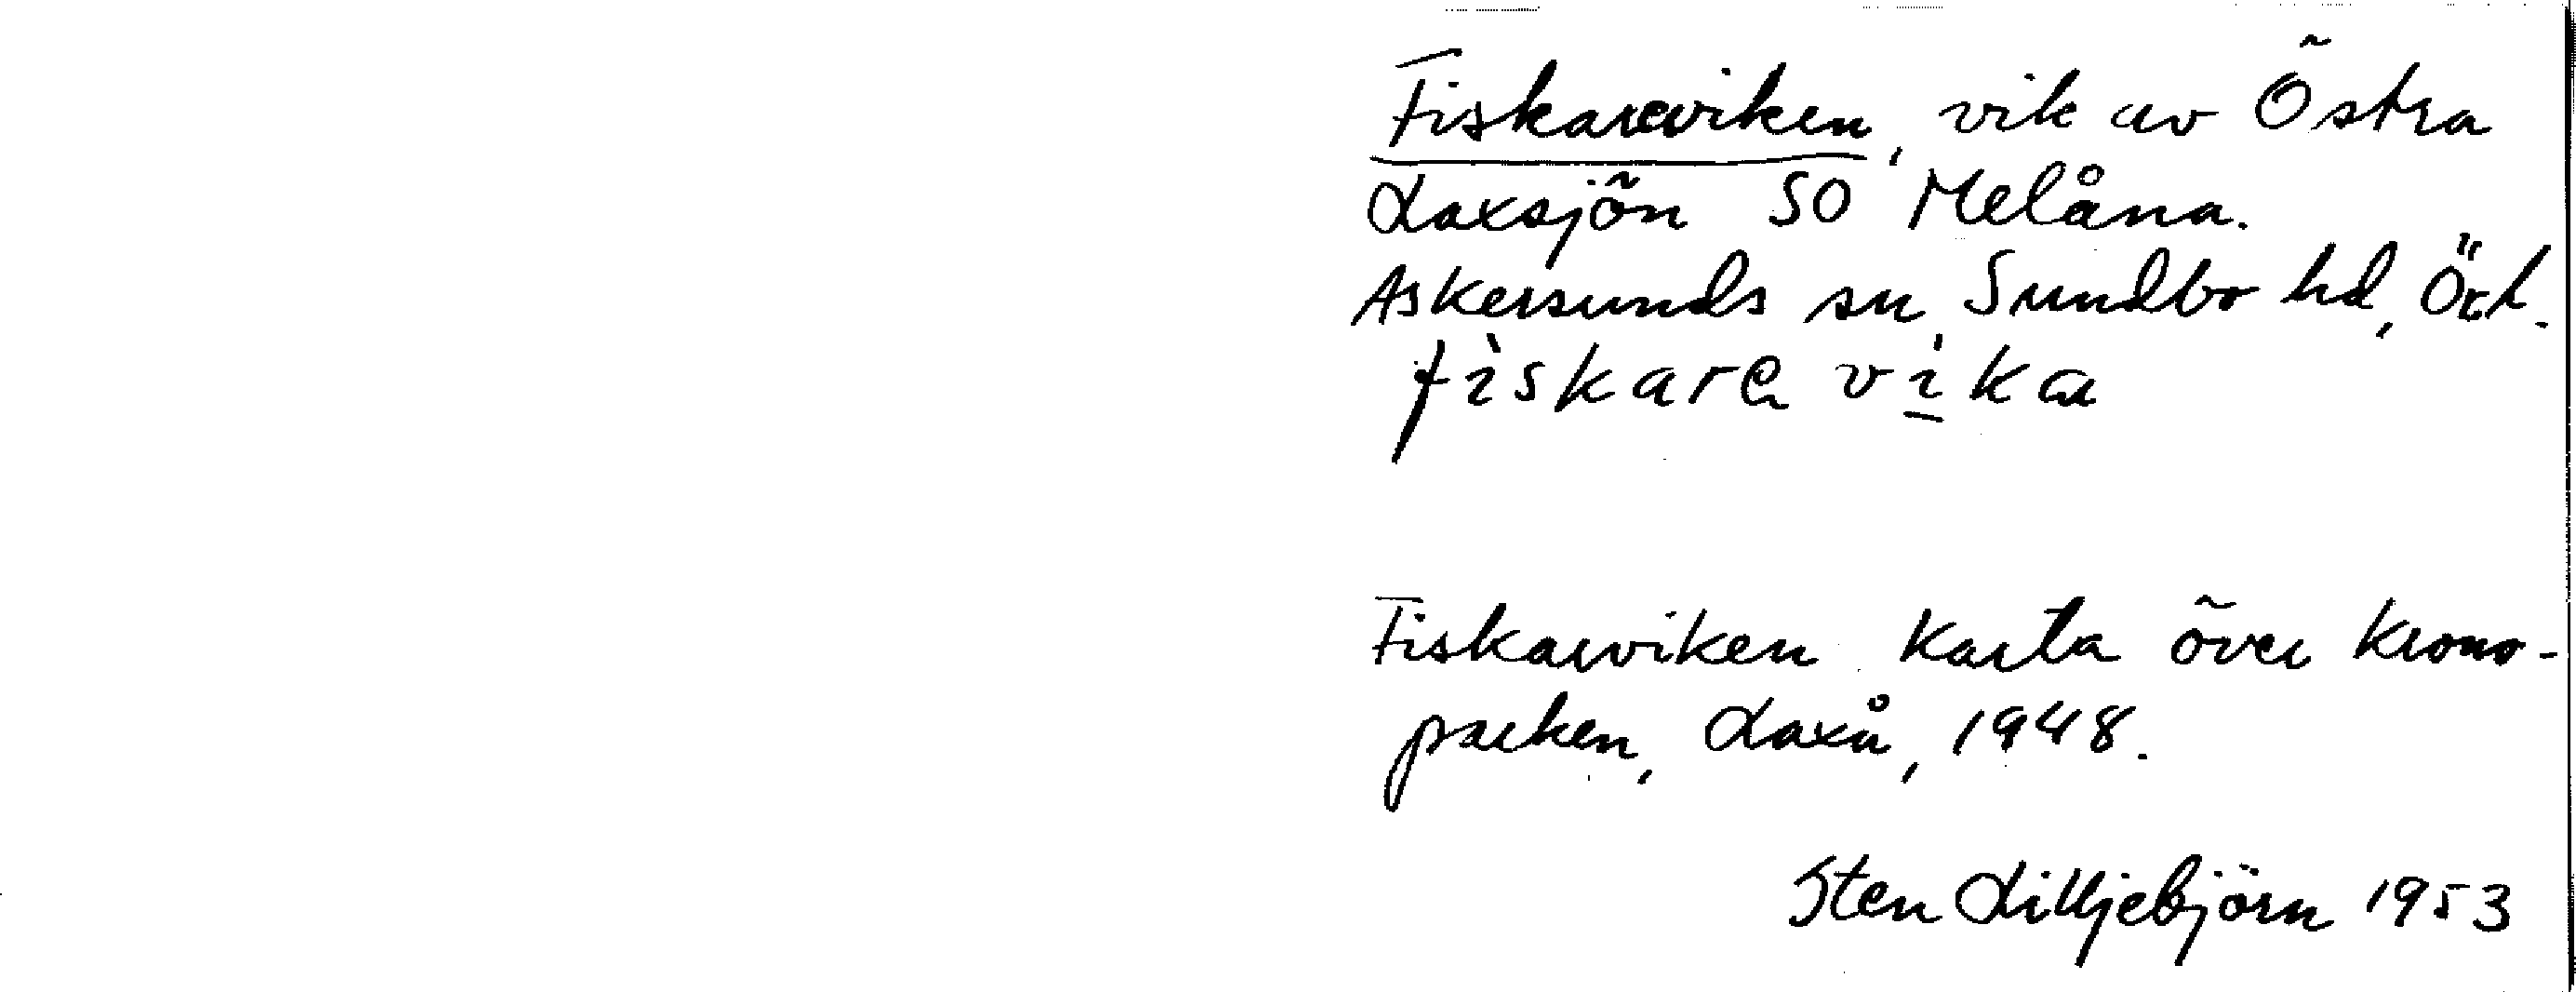 Fiskareviken, vik av Östra
Laxsjön SO Melåna.
Askersunds sn, Sundbo hd, Ört.
fìskare vika
Fiskarviken Karta över krono-
parken, Laxå, 1948.
Sten Lilljebjörn 1953